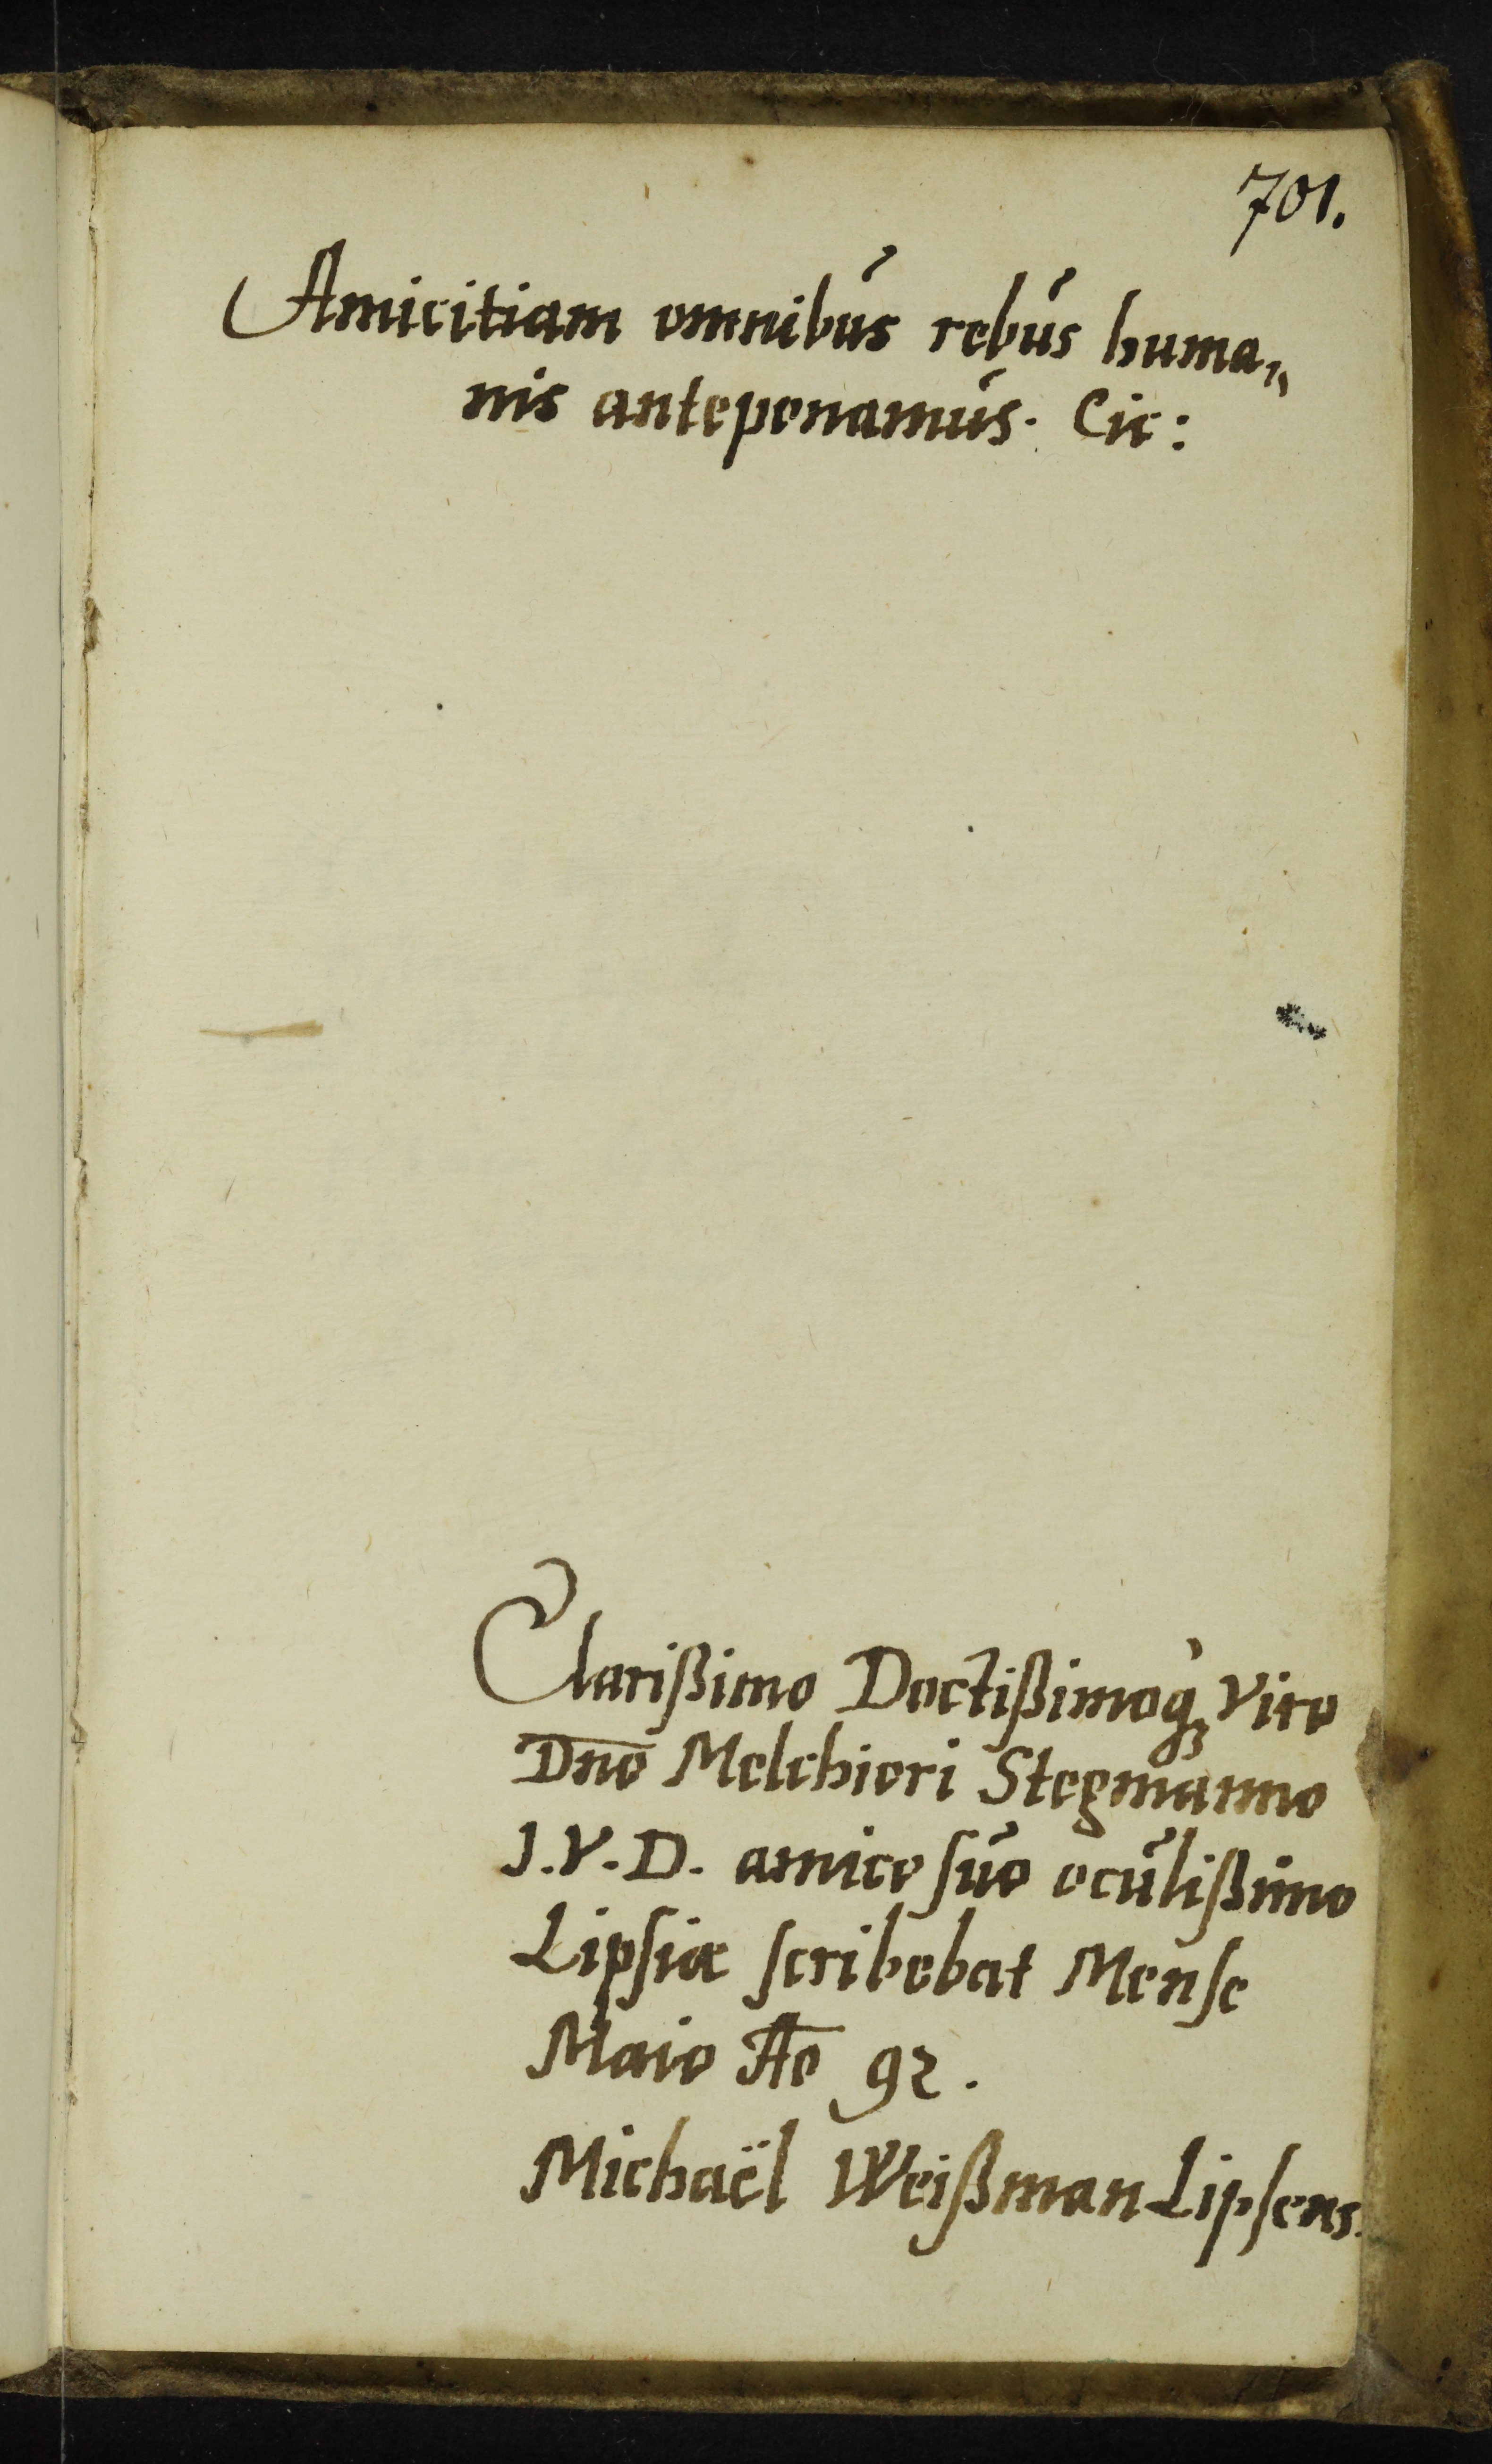 701.
Amicitiam omnibus rebus huma„
nis anteponamus. Cic:
Clarißimo Doctißimoq; Viro
Dn̄o Melchiori Stegmanno
J.V.D. amico suo oculißimo
Lipsiæ scribebat Mense
Maio A͞o 92.
Michaël Weißman Lipsens.